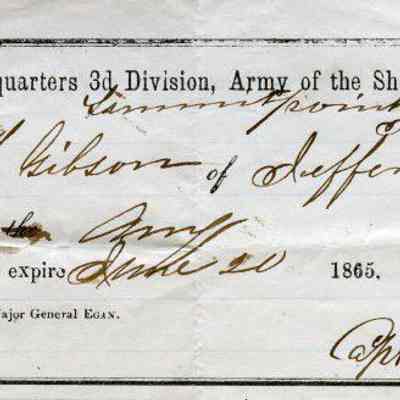 quarters 3d Division, Army of the Sh
Summit point
Gibson of Jeffer
the Army
expire June 20 1865.
Major General EGAN.
Capt